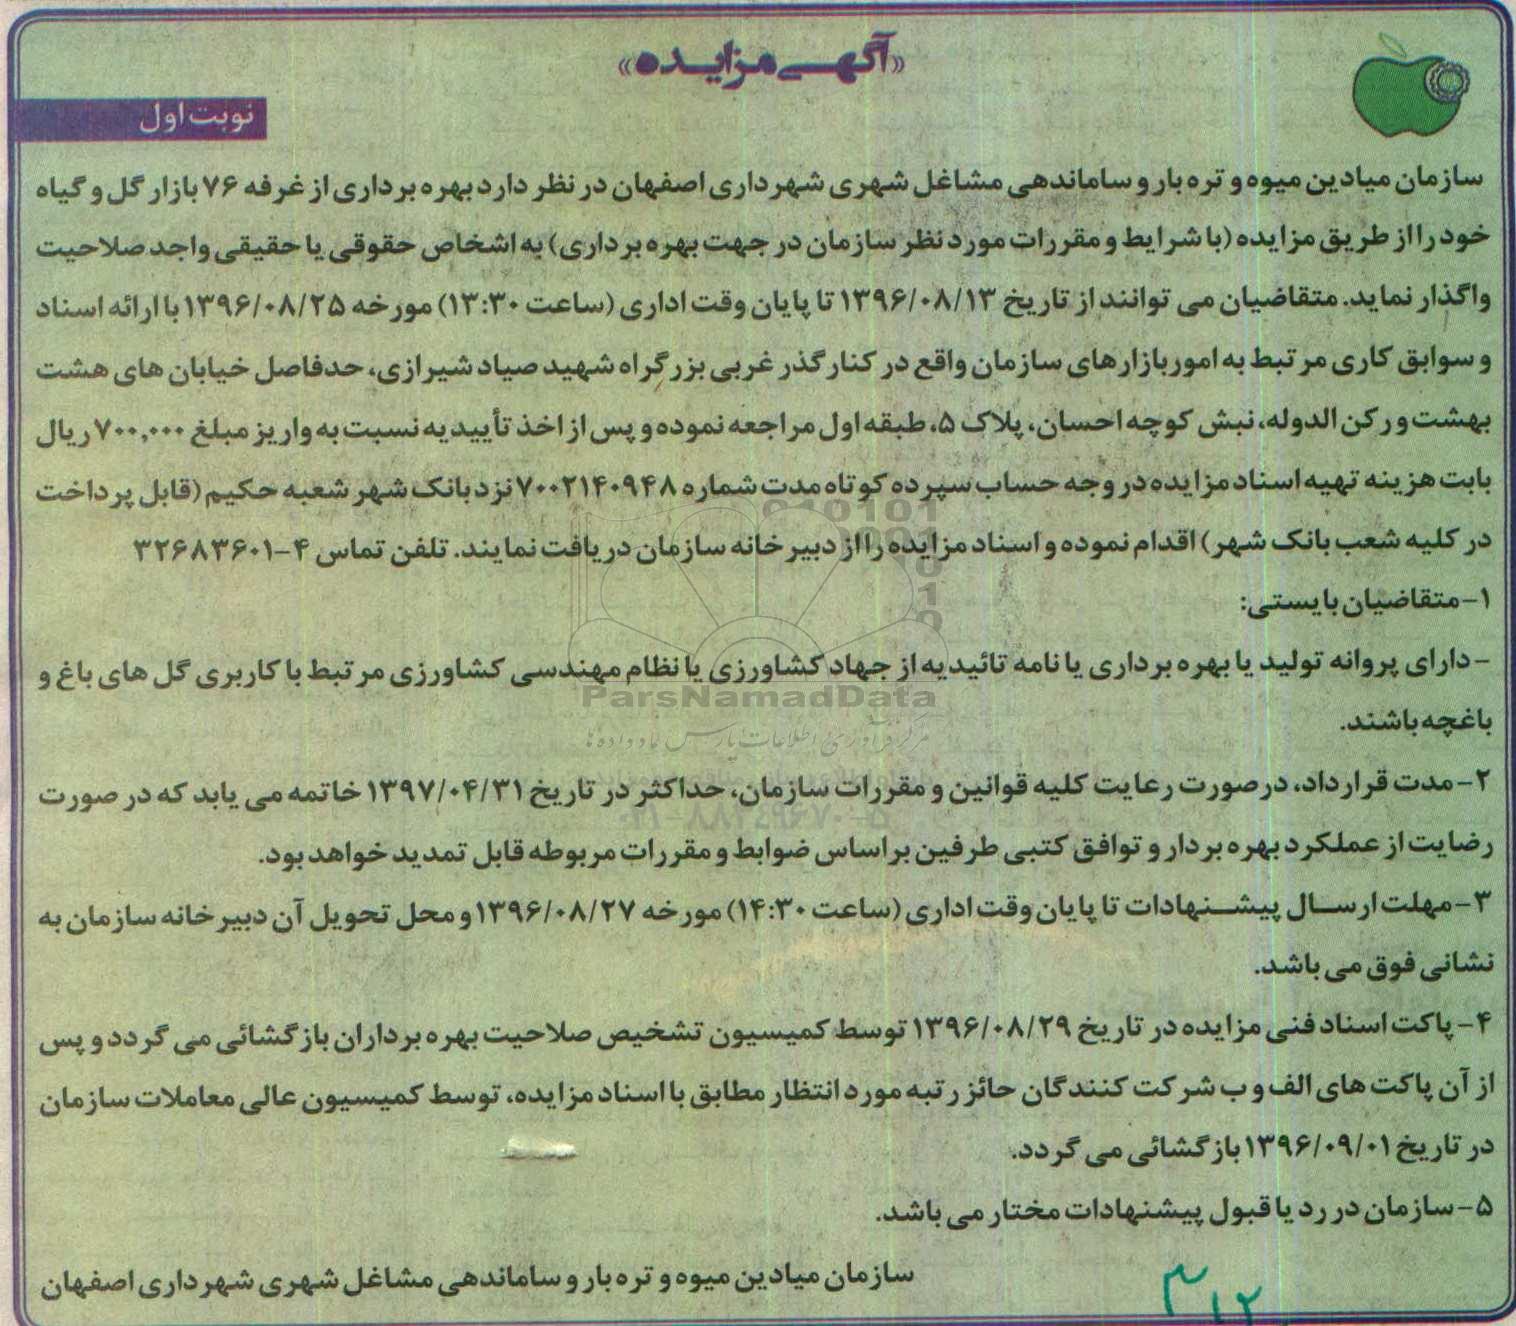 «آگهی مزایده»
نوبت اول
سازمان میادین میوه و تره بار و ساماندهی مشاغل شهری شهرداری اصفهان در نظر دارد بهره برداری از غرفه ۷۶ بازار گل و گیاه
خود را از طریق مزایده (با شرایط و مقررات مورد نظر سازمان در جهت بهره برداری) به اشخاص حقوقی یا حقیقی واجد صلاحیت
واگذار نماید. متقاضیان می توانند از تاریخ ۱۳۹۶/۰۸/۱۳ تا پایان وقت اداری (ساعت ۱۳:۳۰) مورخه ۱۳۹۶/۰۸/۲۵ با ارائه اسناد
و سوابق کاری مرتبط به امور بازارهای سازمان واقع در کنارگذر غربی بزرگراه شهید صیاد شیرازی، حدفاصل خیابان های هشت
بهشت و رکن الدوله، نبش کوچه احسان، پلاک ۵، طبقه اول مراجعه نموده و پس از اخذ تأییدیه نسبت به واریز مبلغ ۷۰۰,۰۰۰ ریال
بابت هزینه تهیه اسناد مزایده در وجه حساب سپرده کوتاه مدت شماره ۷۰۰۲۱۴۰۹۴۸ نزد بانک شهر شعبه حکیم (قابل پرداخت
در کلیه شعب بانک شهر) اقدام نموده و اسناد مزایده را از دبیرخانه سازمان دریافت نمایند. تلفن تماس ۴-۳۲۶۸۳۶۰۱
۱-متقاضیان بایستی:
-دارای پروانه تولید یا بهره برداری یا نامه تائیدیه از جهاد کشاورزی یا نظام مهندسی کشاورزی مرتبط با کاربری گل های باغ و
باغچه باشند.
ParsNamadData
مرکز فرآوری اطلاعات پارس نماد داده ها
۲-مدت قرارداد، درصورت رعایت کلیه قوانین و مقررات سازمان، حداکثر در تاریخ ۱۳۹۷/۰۴/۳۱ خاتمه می یابد که در صورت
۰۲۱-۸۸۳۴۹۶۷۰-۵
رضایت از عملکرد بهره بردار و توافق کتبی طرفین بر اساس ضوابط و مقررات مربوطه قابل تمدید خواهد بود.
۳-مهلت ارسال پیشنهادات تا پایان وقت اداری (ساعت ۱۴:۳۰) مورخه ۱۳۹۶/۰۸/۲۷ و محل تحویل آن دبیرخانه سازمان به
نشانی فوق می باشد.
۴-پاکت اسناد فنی مزایده در تاریخ ۱۳۹۶/۰۸/۲۹ توسط کمیسیون تشخیص صلاحیت بهره برداران بازگشائی می گردد و پس
از آن پاکت های الف و ب شرکت کنندگان حائز رتبه مورد انتظار مطابق با اسناد مزایده، توسط کمیسیون عالی معاملات سازمان
در تاریخ ۱۳۹۶/۰۹/۰۱ بازگشائی می گردد.
۵-سازمان در رد یا قبول پیشنهادات مختار می باشد.
سازمان میادین میوه و تره بار و ساماندهی مشاغل شهری شهرداری اصفهان